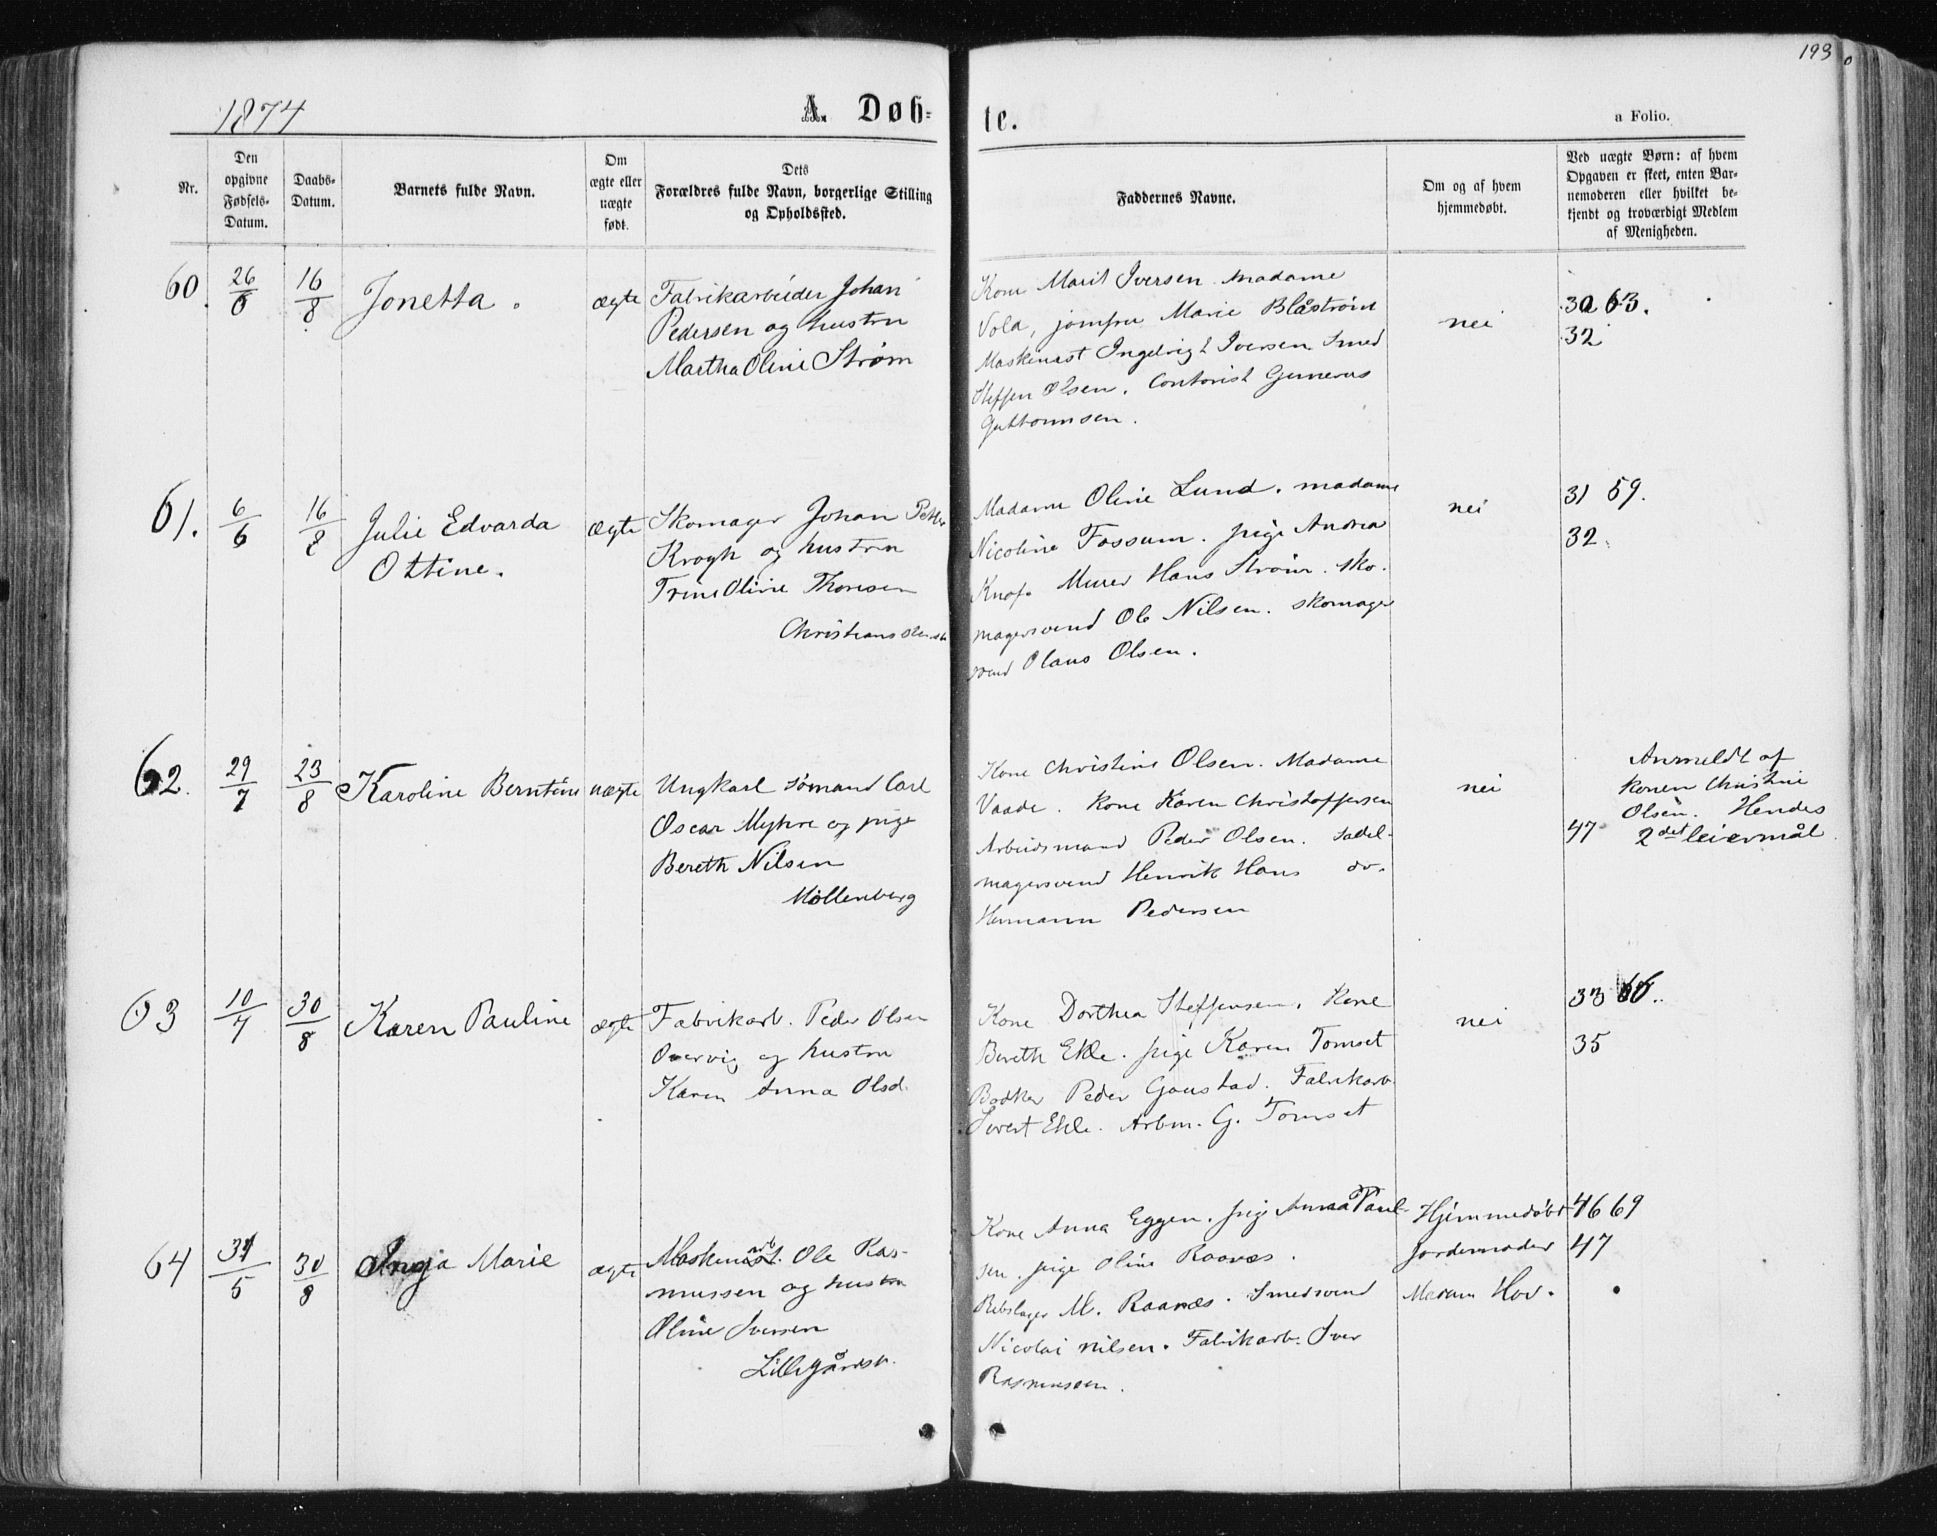 193
1874
A. Døb-
te.
a Folio.
Nr.
Den
opgivne
Fødsels-
Datum.
Daabs-
Datum.
Barnets fulde Navn.
Om
ægte eller
uægte
født.
Dets
Forældres fulde Navn, borgerlige Stilling
og Opholdssted.
Faddernes Navne.
Om og af hvem
hjemmedøbt.
Ved uægte Børn: af hvem
Opgaven er skeet, enten Bar-
nemoderen eller hvilket be-
kjendt og troværdigt Medlem
af Menigheden.
60.
26/6
16/8
Jonetta.
ægte
Fabrikarbeider Johan
Pedersen og hustru
Martha Oline Strøm
Kone Marit Iversen. madame
Vold, jomfru Marie Blåstrøm
Maskinist Ingebrigt Iversen. Smed
Steffen Olsen. Contorist Gunerus
Guttormsen.
nei
30 63.
32
61.
6/6
16/8
Julie Edvarda
Ottine.
ægte
Skomager Johan Petter
Krogh og hustru
Trine Oline Thoresen
Madame Oline Lund. madame
Nicoline Fossum. pige Andrea
Knof. Murer Hans Strøm. sko-
magersvend Ole Nilsen. skomager
svend Olaus Olsen.
nei
31 59.
32.
62.
29/7
23/8
Karoline Berntine
uægte
Ungkarl sømand Carl
Oscar Myhre og pige
Bereth Nilsen
Møllenberg
Kone Christine Olsen. Madame
Vaade. Kone Karen Christoffersen
Arbeidsmand Peder Olsen. Sadel-
magersvend Henrik Hans do.
Hermann Pedersen
nei
47
Anmeldt af
konen Christine
Olsen. Hendes
2det leiermål.
63
10/7
30/8
Karen Pauline
ægte
Fabrikarb. Peder Olsen
Overvig og hustru
Karen Anna Olsd.
Kone Dorthea Steffensen. Kone
Bereth Ekle. pige Karen Tomset
Bødker Peder Goustad. Fabrikarb.
Sivert Ekle. Arbm. G. Tomset
nei
33 66.
35
64
31/5
30/8
Inga Marie
ægte
Maskinarb. Ole Ras-
mussen og hustru
Oline Iversen
Lillegårdsb.
Kone Anna Eggen. pige Anna Paul-
sen. pige Oline Raanæs.
Rebslager M. Raanæs. Smedsvend
Nicolai Nilsen. Fabrikarb. Iver
Rasmussen.
Hjemmedøbt
Jordemoder
Madam Hov.
46 69
47